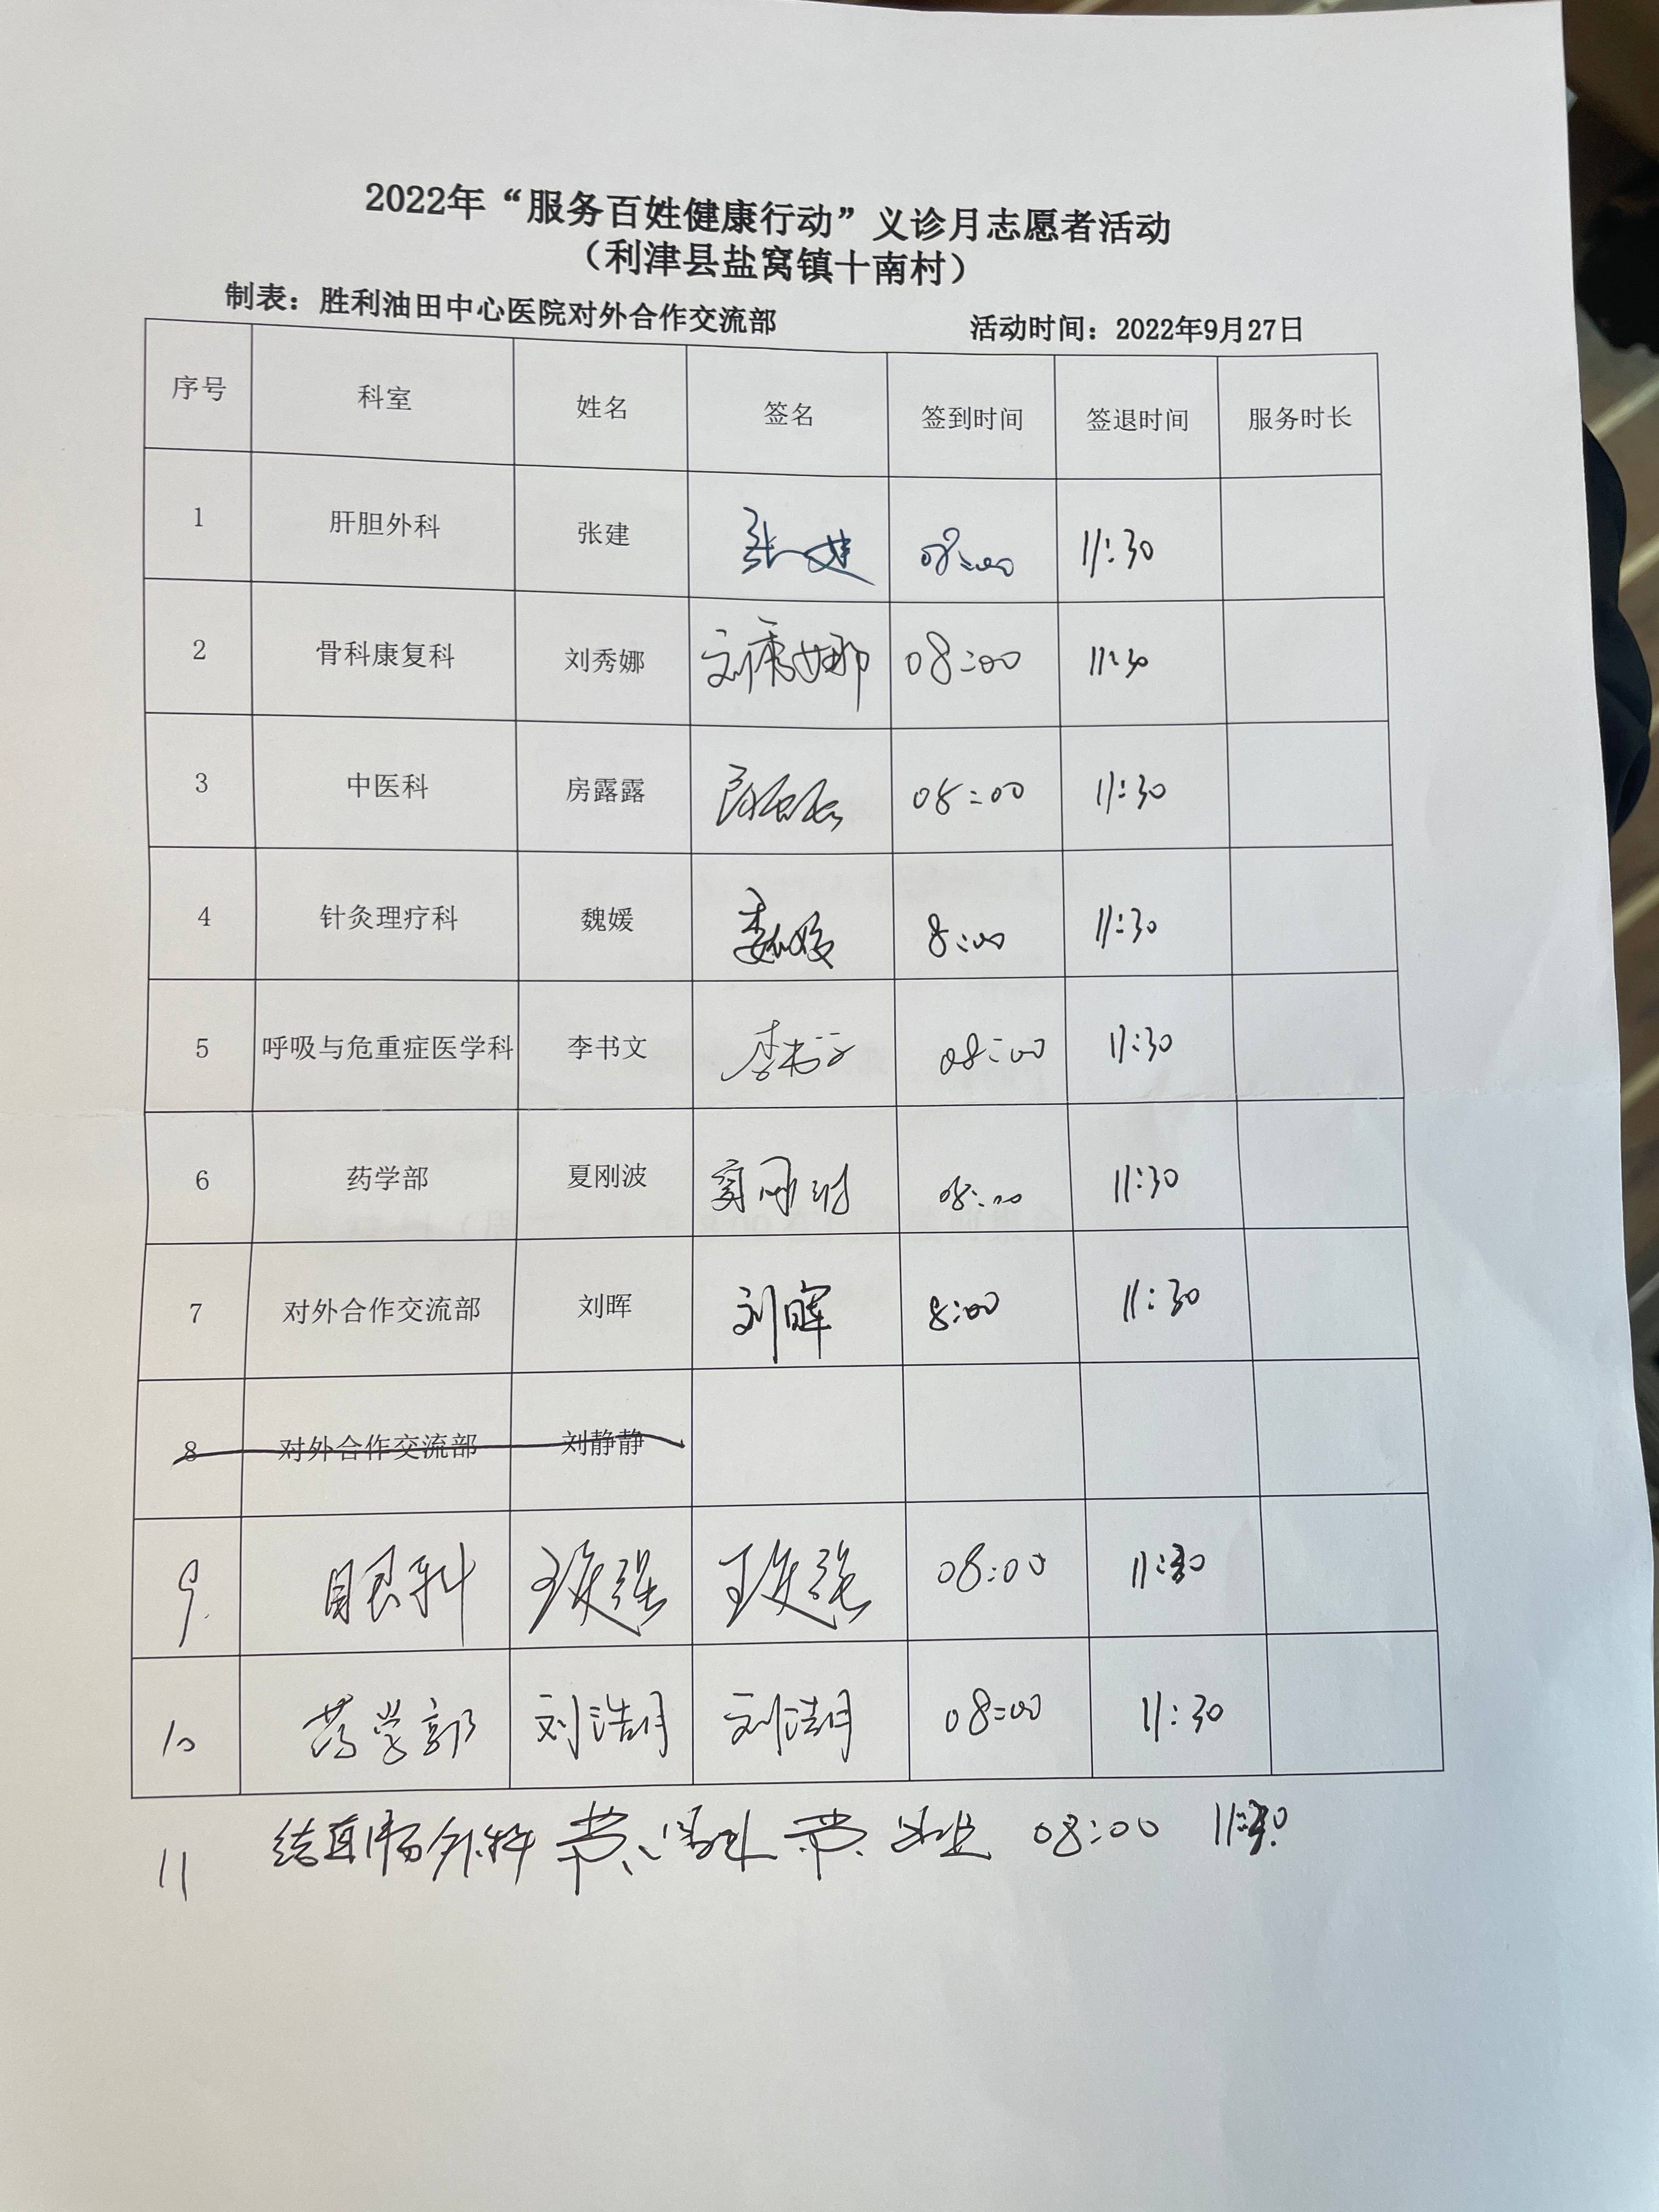 2022年“服务百姓健康行动”义诊月志愿者活动
（利津县盐窝镇十南村）
制表：胜利油田中心医院对外合作交流部 活动时间：2022年9月27日
序号 科室 姓名 签名 签到时间 签退时间 服务时长
1 肝胆外科 张建 张建 08:00 11:30
2 骨科康复科 刘秀娜 刘秀娜 08:00 11:30
3 中医科 房露露 房露露 08:00 11:30
4 针灸理疗科 魏媛 魏媛 8:00 11:30
5 呼吸与危重症医学科 李书文 李书文 08:00 11:30
6 药学部 夏刚波 夏刚波 08:00 11:30
7 对外合作交流部 刘晖 刘晖 8:00 11:30
8 对外合作交流部 刘静静
9. 眼科 08:00 11:30
10 药学部 刘浩月 刘浩月 08:00 11:30
11 结直肠外科 08:00 11:30